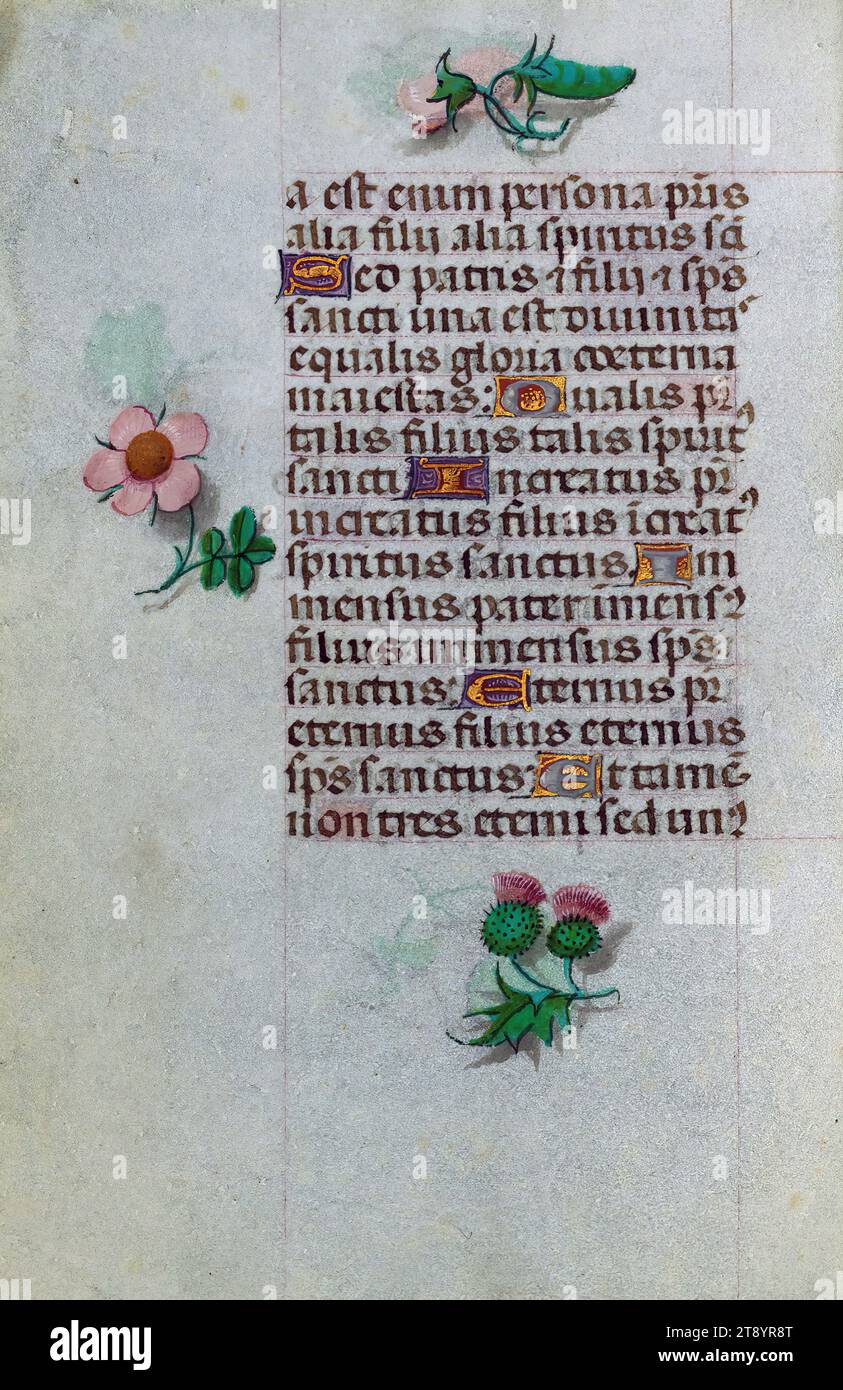 a est enim persona pr̃is
alia filij alia spiritus sc̃i
Sed patris ⁊ filij ⁊ sp̃s
sancti una est diuinitaˀ
equalis gloria coeterna
maiestas: Qualis pr̃
talis filius talis spiritˀ
sancti Increatus pr̃
increatus filius ĩcreatˀ
spiritus sanctus, Im
mensus pater ĩmensꝰ
filius immensus sp̃s
sanctus: Eternus pr̃
eternus filius eternus
sp̃s sanctus: Et tamẽ
non tres eterni sed unꝰ
alamy
Image ID: 2T8YR8T
www.alamy.com